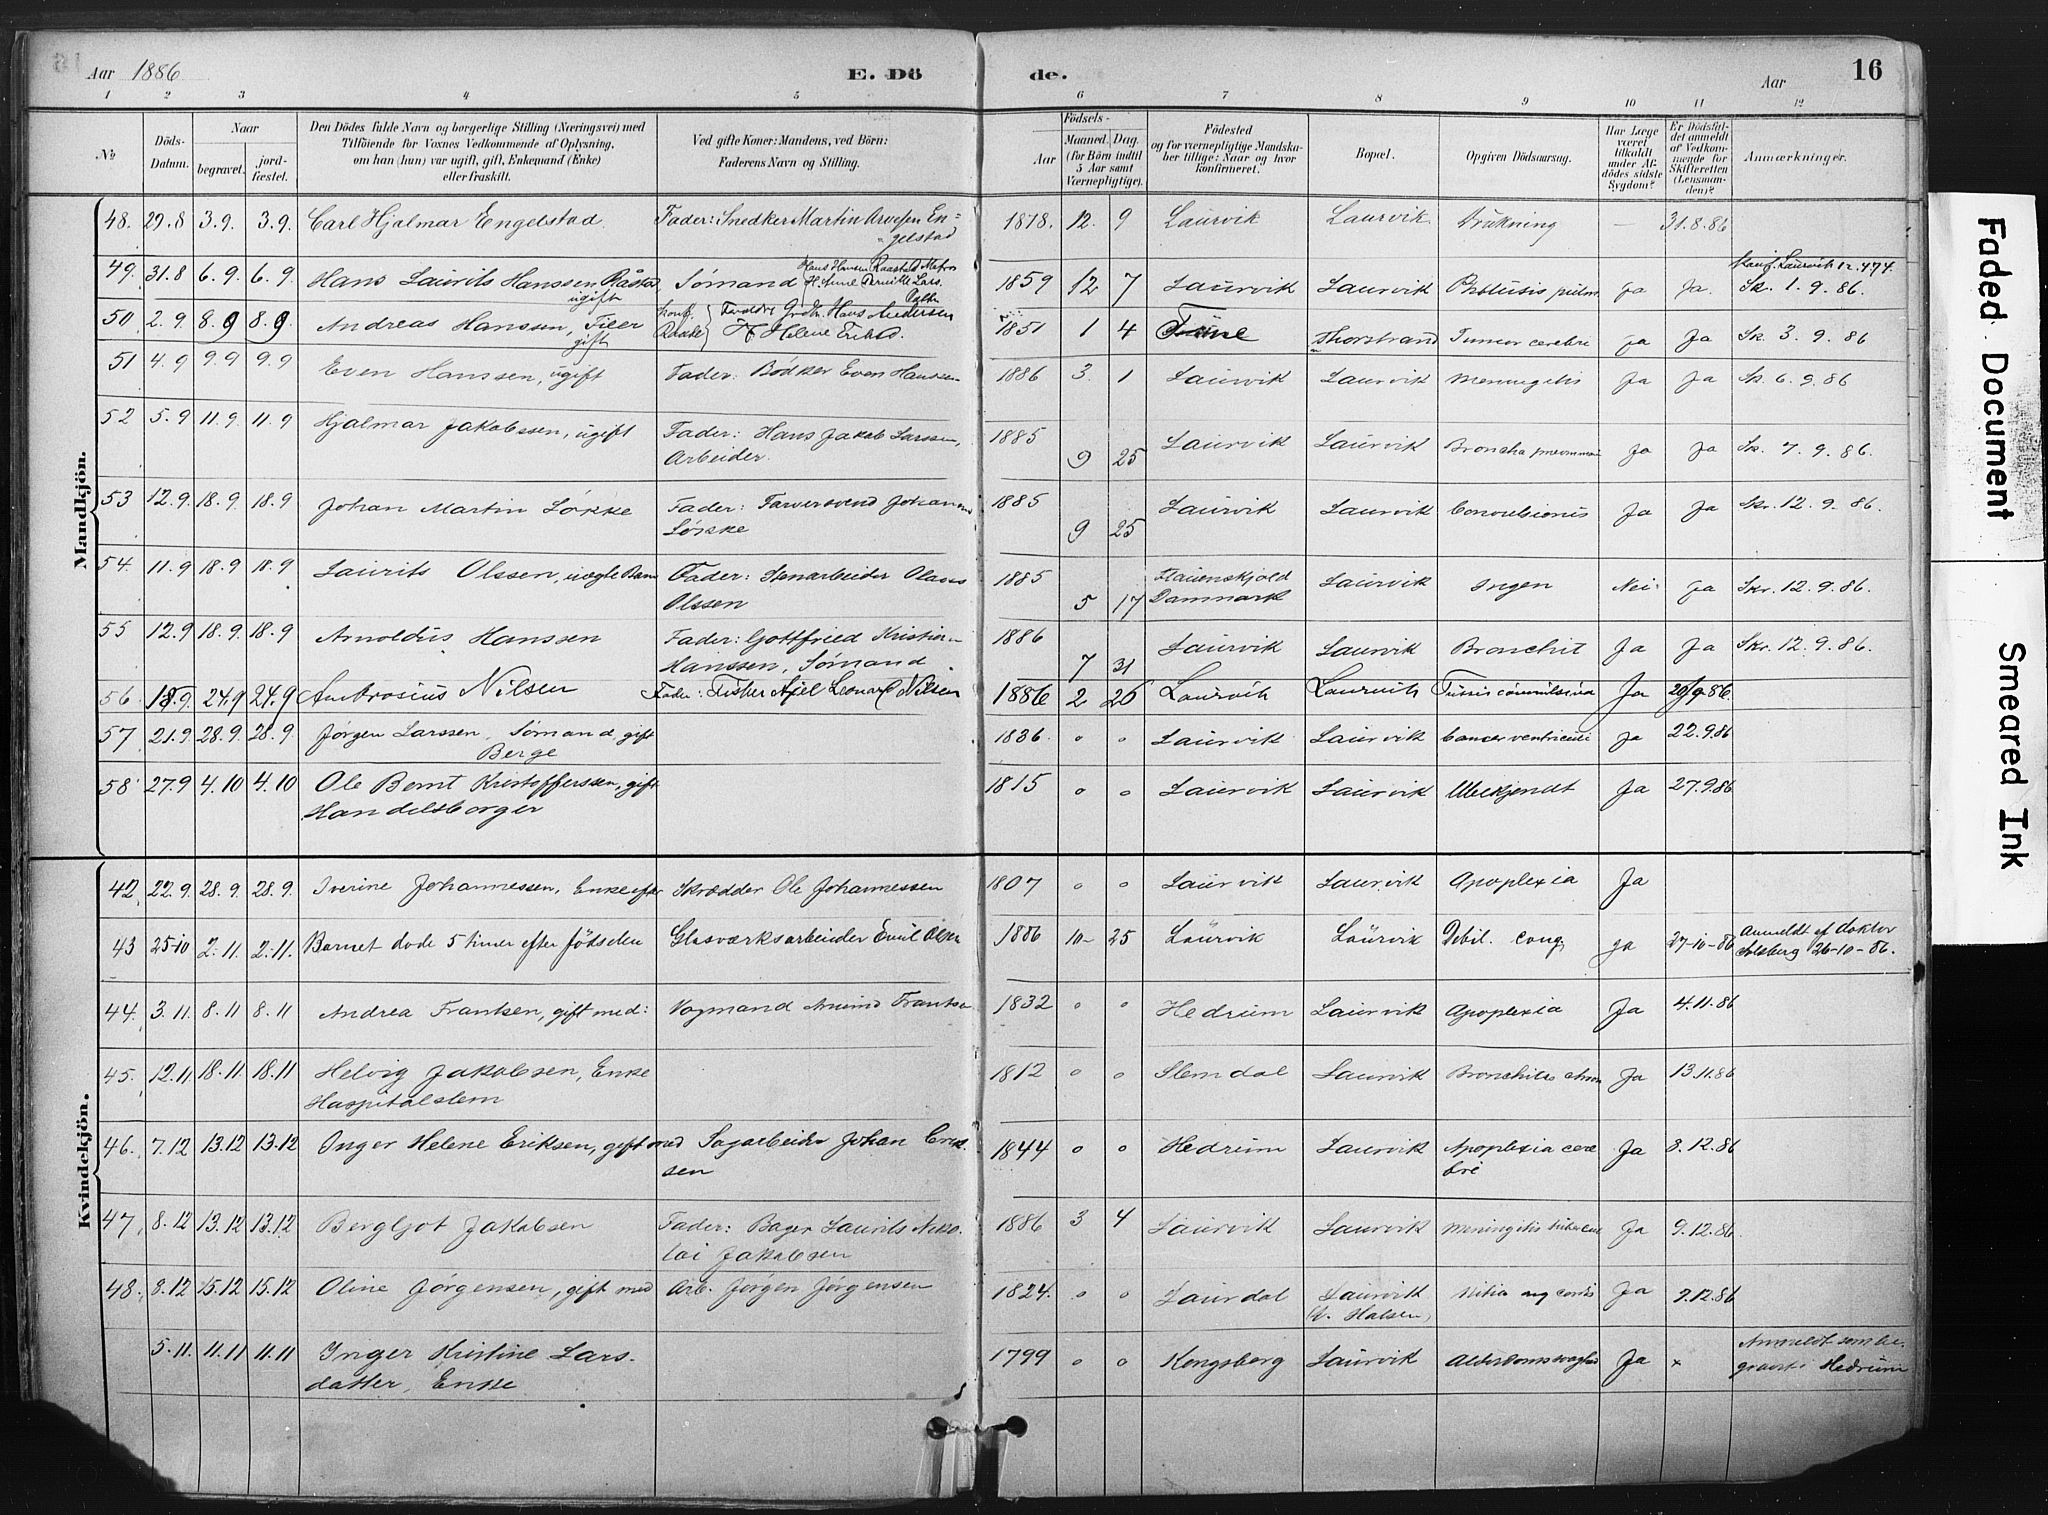 Aar 1886
E. Dö
de.
Aar
16
1 2 3 4 5 6 7 8 9 10 11 12
No
Döds-
Datum.
Naar
begravet.
jord-
fæstet.
Den Dödes fulde Navn og borgerlige Stilling (Næringsvei) med
Tilföiende for Voxnes Vedkommende af Oplysning,
om han (hun) var ugift, gift, Enkemand (Enke)
eller fraskilt.
Ved gifte Koner: Mandens, ved Börn:
Faderens Navn og Stilling.
Födsels-
Aar
Maaned.
Dag.
(for Börn indtil
5 Aar samt
Værnepligtige).
Födested
og for værnepligtige Mandska-
ber tillige: Naar og hvor
konfirmeret.
Bopæl.
Opgiven Dödsaarsag.
Har Læge
været
tilkaldt
under Af-
dödes sidste
Sygdom?
Er Dödsfal-
det anmeldt
af Vedkom-
mende for
Skifteretten
(Lensman-
den)?
Anmærkninger.
Mandkjön.
48. 29.8 3.9. 3.9. Carl Hjalmar Engelstad. Fader: Snedker Martin Arvesen En=
gelstad 1878. 12. 9 Laurvik Laurvik Drukning — 31.8.86
49. 31.8 6.9. 6.9. Hans Laurits Hanssen
ugift Sømand 1859 12 7 Laurvik Laurvik Ja Ja. Sk. 1.9.86.
50 2.9. 8.9 8.9. Andreas Hanssen, Fier
gift Hans Andersen
Helene 1851 1 4 Thorstrand Tumor cerebri Ja Ja Sk. 3.9.86
51 4.9 9.9 9.9 Even Hanssen, ugift Fader: Bødker Even Hanssen 1886 3. 1 Laurvik Laurvik Meningitis Ja Ja Sk. 6.9.86
52 5.9 11.9 11.9 Hjalmar Jakobssen, ugift Fader: Hans Jakob Larssen,
Arbeider. 1885 9 25 Laurvik Laurvik Ja Ja Sk. 7.9.86.
53 12.9. 18.9 18.9 Johan Martin Lørske Fader: Farversvend Johan
Lørske 1885 9 25 Laurvik Laurvik Convulsionis Ja Ja Skr. 12.9.86.
54. 11.9 18.9 18.9 Laurits Olssen, uægte Barn Fader: Stenarbeider Olaus
Olssen 1885 5 17 Flauenskjold
Danmark Laurvik Ingen Nei. Ja Skr. 12.9.86.
55 12.9 18.9. 18.9 Arnoldus Hanssen Fader: Gottfried Kristian
Hanssen, Sømand. 1886 7 31 Laurvik Laurvik Bronchit Ja Ja Skr. 12.9.86.
56 18.9. 24.9 24.9 Ambrosius Nilsen Fader: Fisker Axel Leonard Nilsen 1886 2 26 Laurvik Laurvik Tussis convulsiva Ja 20/9.86.
57 21.9 28.9. 28.9 Jørgen Larssen, Sømand, gift
Berge 1836. o o Laurvik Laurvik Cancer ventriculi Ja 22.9.86
58 27.9 4.10 4.10 Ole Bernt Kristofferssen, gift
Handelsborger 1815 o o Laurvik Laurvik Ubekjendt Ja 27.9.86
Kvindekjön.
42 22.9. 28.9. 28.9. Iverine Johannessen, Enke efter Skrædder Ole Johannessen 1807 o o Laurvik Laurvik Apoplexia Ja
43 25-10 2.11. 2.11. Barnet døde 5 timer efter fødselen Glasværksarbeider Emil Olsen 1886 10- 25 Laurvik Laurvik Debil. cong. Ja 27-10-86 Anmeldt af doktor
Solsberg 26-10-86.
44. 3.11 8.11 8.11 Andrea Frantsen, gift med: Vognmand Amund Frantsen 1832 o o Hedrum Laurvik Apoplexia Ja 4.11.86
45. 12.11 18.11 18.11 Helvig Jakobsen, Enke
Hospitalslem 1812 o o Slemdal Laurvik Bronchitis chron Ja 13.11.86
46. 7.12 13.12 13.12 Inger Helene Eriksen, gift med Sagarbeider Johan Erik-
sen 1844 o o Hedrum Laurvik Apoplexia cere
bri Ja 8.12.86
47, 8.12 13.12 13.12 Bergljot Jakobsen Fader: Bager Laurits Niko-
lai Jakobsen 1886 3 4 Laurvik Laurvik Meningitis tubercul Ja 9.12.86
48. 8.12 15.12 15.12 Oline Jørgensen, gift med Arb. Jørgen Jørgensen 1824. o o Laurdal Laurvik
(v. Halsen) Vitia org cordis Ja 9.12.86
5.11. 11.11 11.11 Inger Kristine Lars-
datter, Enke 1799 o o Kongsberg Laurvik Alderdomssvaghed Ja x Anmeldt som be-
gravet i Hedrum
Faded Document
Smeared Ink